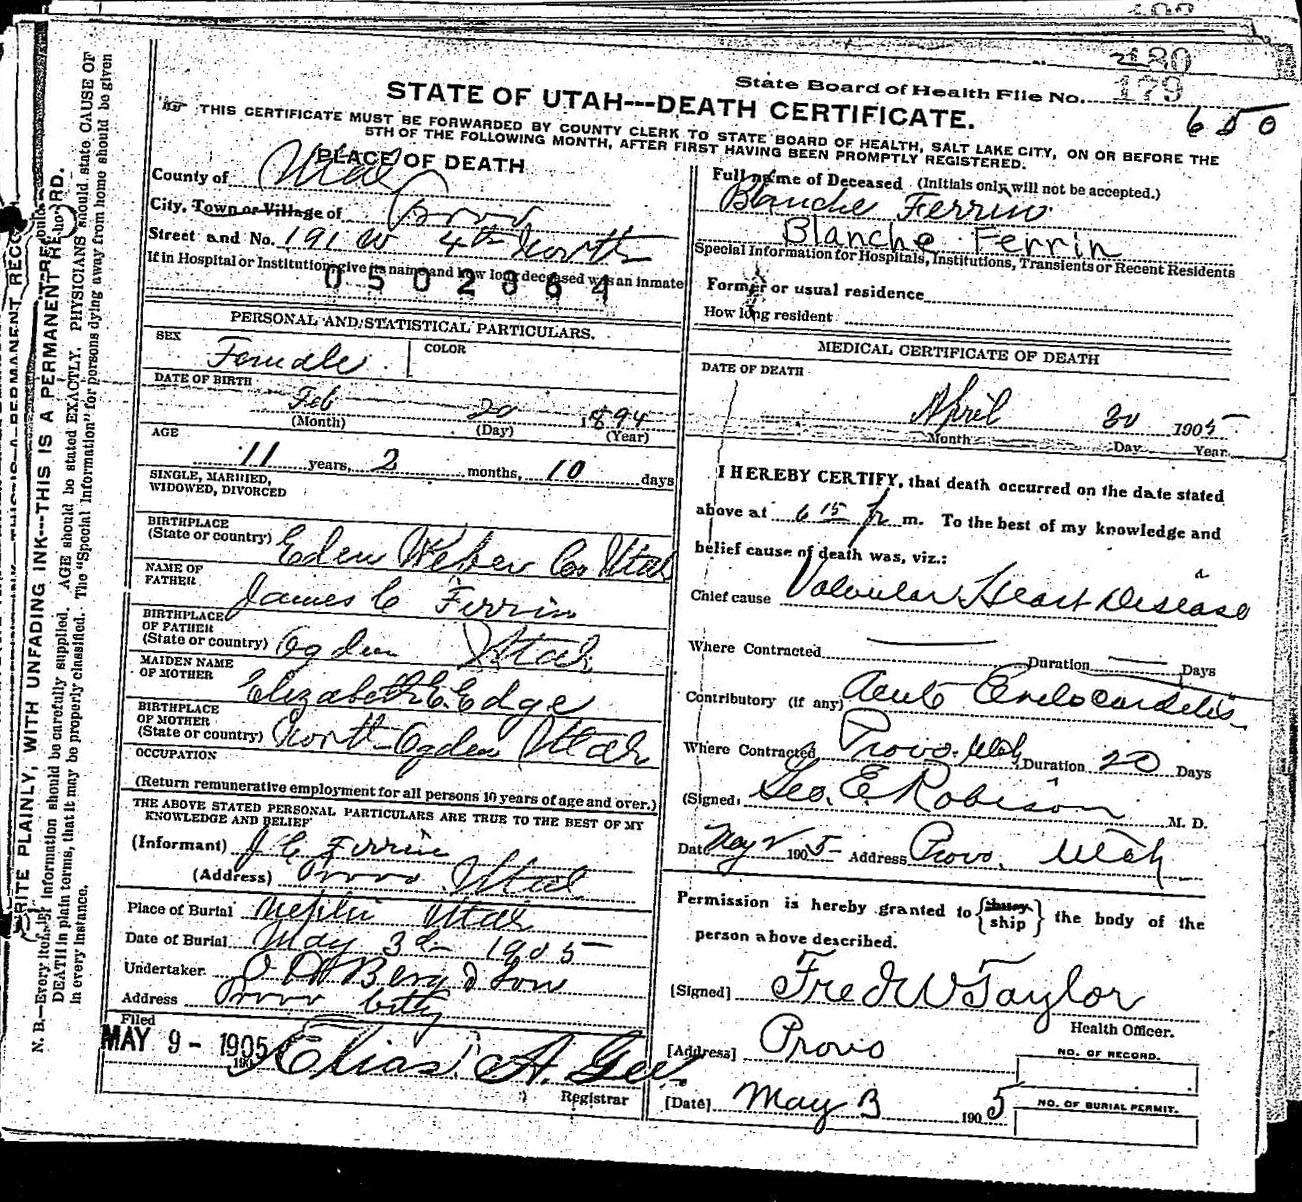 180
State Board of Health File No. 179
650
STATE OF UTAH---DEATH CERTIFICATE.
THIS CERTIFICATE MUST BE FORWARDED BY COUNTY CLERK TO STATE BOARD OF HEALTH, SALT LAKE CITY, ON OR BEFORE THE
5TH OF THE FOLLOWING MONTH, AFTER FIRST HAVING BEEN PROMPTLY REGISTERED.
PLACE OF DEATH
County of Utah
City, Town or Village of Provo
Street and No. 191 W 4th North
If in Hospital or Institution, give its name and how long deceased was an inmate
0502364
PERSONAL AND STATISTICAL PARTICULARS.
SEX Female COLOR
DATE OF BIRTH
Feb 20 1894
(Month) (Day) (Year)
AGE
11 years, 2 months, 10 days
SINGLE, MARRIED,
WIDOWED, DIVORCED
BIRTHPLACE
(State or country) Eden Weber Co Utah
NAME OF
FATHER James C Ferrin
BIRTHPLACE
OF FATHER
(State or country) Ogden Utah
MAIDEN NAME
OF MOTHER Elizabeth E. Edge
BIRTHPLACE
OF MOTHER
(State or country) North Ogden Utah
OCCUPATION
(Return remunerative employment for all persons 10 years of age and over.)
THE ABOVE STATED PERSONAL PARTICULARS ARE TRUE TO THE BEST OF MY
KNOWLEDGE AND BELIEF
(Informant) J C Ferrin
(Address) Provo Utah
Place of Burial Nephi Utah
Date of Burial May 3d 1905
Undertaker. O H Berg & Son
Address Provo City
Filed
MAY 9 - 1905
190
Elias A. Gee
Registrar
Full name of Deceased (Initials only will not be accepted.)
Blanche Ferrin
Blanche Ferrin
Special Information for Hospitals, Institutions, Transients or Recent Residents
Former or usual residence
How long resident
MEDICAL CERTIFICATE OF DEATH
DATE OF DEATH
April 30 1905
Month Day Year
I HEREBY CERTIFY, that death occurred on the date stated
above at 6 15 p m. To the best of my knowledge and
belief cause of death was, viz.:
Chief cause Valvular Heart Disease
a
Where Contracted Duration Days
Contributory (if any) Acute Endocarditis
Where Contracted Provo, Utah, Duration 20 Days
(Signed) Geo. E. Robison M. D.
Date May 2 1905 Address Provo, Utah
Permission is hereby granted to ship the body of the
person above described.
[Signed] Fred W Taylor
Health Officer.
[Address] Provo
NO. OF RECORD.
[Date] May 3 1905
NO. OF BURIAL PERMIT.
WRITE PLAINLY, WITH UNFADING INK---THIS IS A PERMANENT RECORD.
N. B.—Every item of information should be carefully supplied. AGE should be stated EXACTLY. PHYSICIANS should state CAUSE OF
DEATH in plain terms, that it may be properly classified. The "Special Information" for persons dying away from home should be given
in every instance.